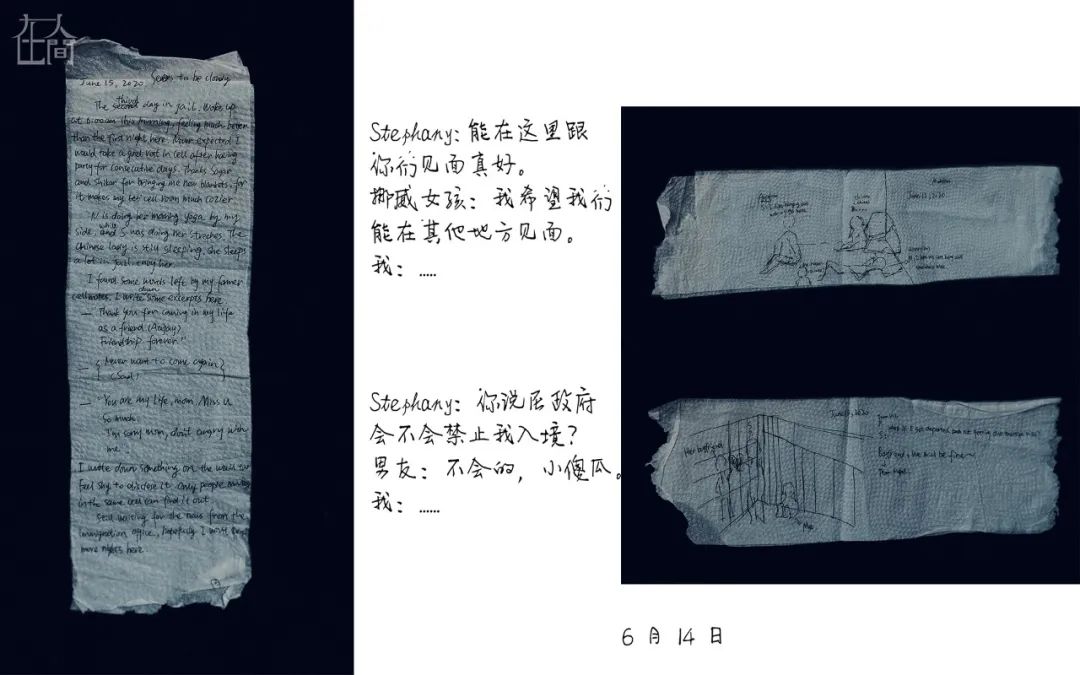 在人間
June 15, 2020. Seems to be cloudy
The third day in jail. Woke up
at this morning, feeling much better
than the first night here. Never expected I
would take a good rest in cell after having
party for consecutive days. Thanks Sagar
and Shikar for bringing me new blankets, for
it makes my cell room much cozier
N is doing her morning yoga by my
side, while S was doing her streches. The
chinese lady is still sleeping. She sleeps
a lot in jail.
I found some words left by my former
cellmates. I write down some excerpts here
— Thank you for coming in my life
as a friend
Friendship forever."
— Never want to come again
— "You are my life, mom. Miss u
so much.
I'm sorry mom, don't angry with
me
I wrote down something on the wall too
feel shy to disclose it. Only people
in the same cell can find it out.
Still waiting for the news from the
immigration office, hopefully I won't
more nights here.
Stephany: 能在这里跟
你们见面真好。
挪威女孩：我希望我们
能在其他地方见面。
我：……
Stephany: 你说尼政府
会不会禁止我入境？
男友：不会的，小傻瓜。
我：……
June 13, 2020
June 13, 2020
Her boyfriend
Me
6月14日